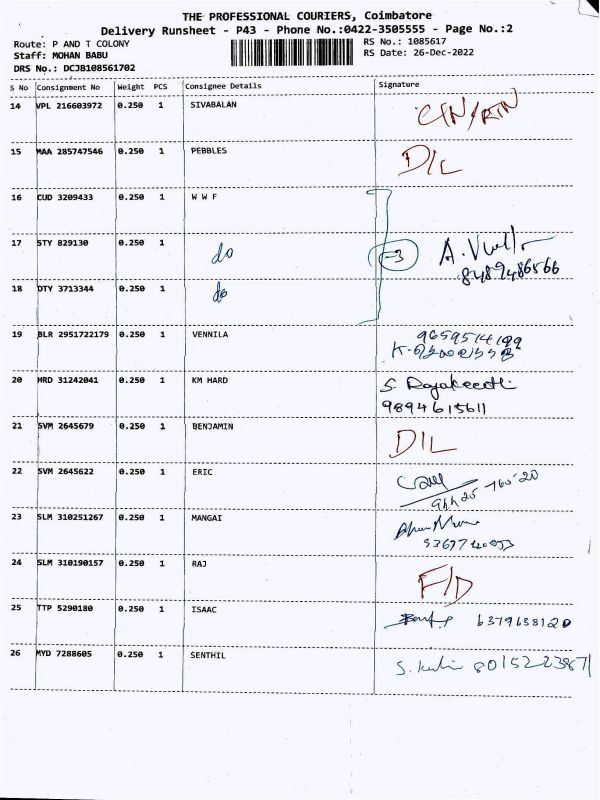 THE PROFESSIONAL COURIERS, Coimbatore
Delivery Runsheet - P43 - Phone No.:0422-3505555 - Page No.:2
Route: P AND T COLONY
RS No.: 1085617
Staff: MOHAN BABU
RS Date: 26-Dec-2022
DRS No.: DCJB108561702
S No Consignment No Weight PCS Consignee Details Signature
14 VPL 216603972 0.250 1 SIVABALAN
15 MAA 285747546 0.250 1 PEBBLES D/L
16 CUD 3209433 0.250 1 W W F
17 STY 829130 0.250 1 do 3 A.
8489486566
18 DTY 3713344 0.250 1 do
19 BLR 2951722179 0.250 1 VENNILA
20 HRD 31242041 0.250 1 KM HARD S.
9894615611
21 SVM 2645679 0.250 1 BENJAMIN D/L
22 SVM 2645622 0.250 1 ERIC
23 SLM 310251267 0.250 1 MANGAI
24 SLM 310190157 0.250 1 RAJ F/D
25 TTP 5290180 0.250 1 ISAAC 6379638120
26 MYD 7288605 0.250 1 SENTHIL S. 8015223871